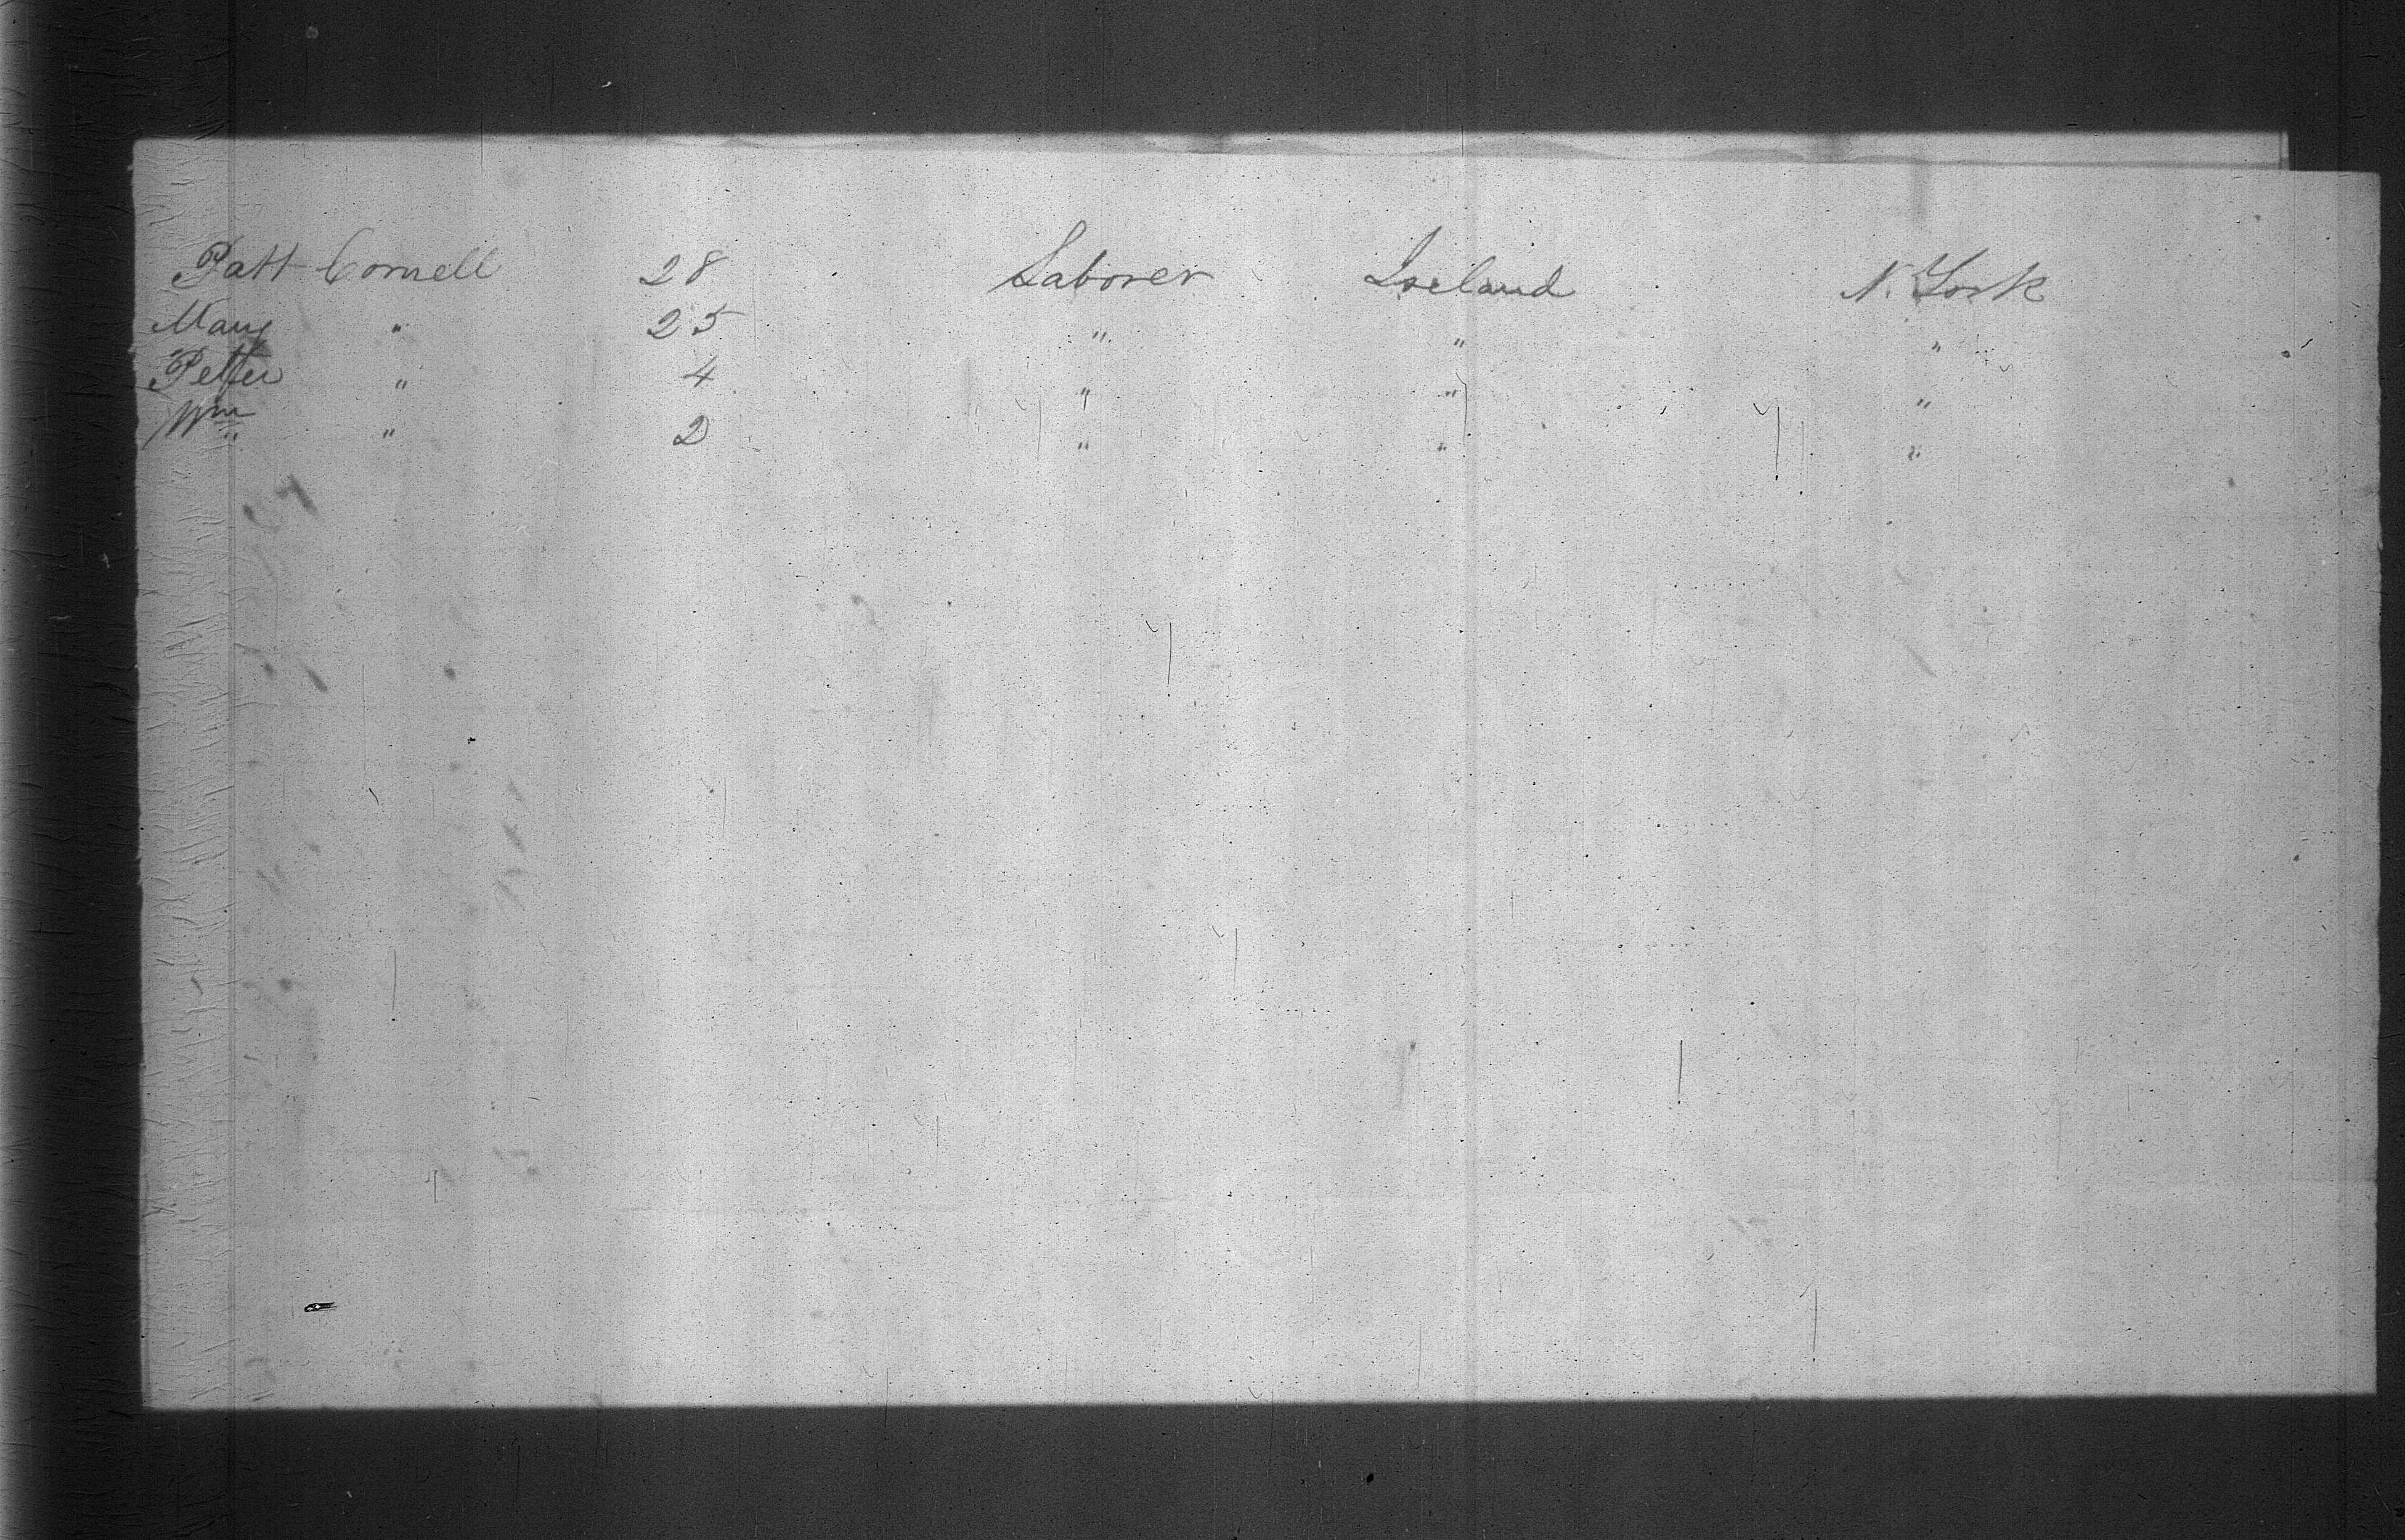 Patt Cornell 28 Laborer Ireland N. York
Mary " 25 " " "
Petter " 4 " " "
Wm " 2 " " "